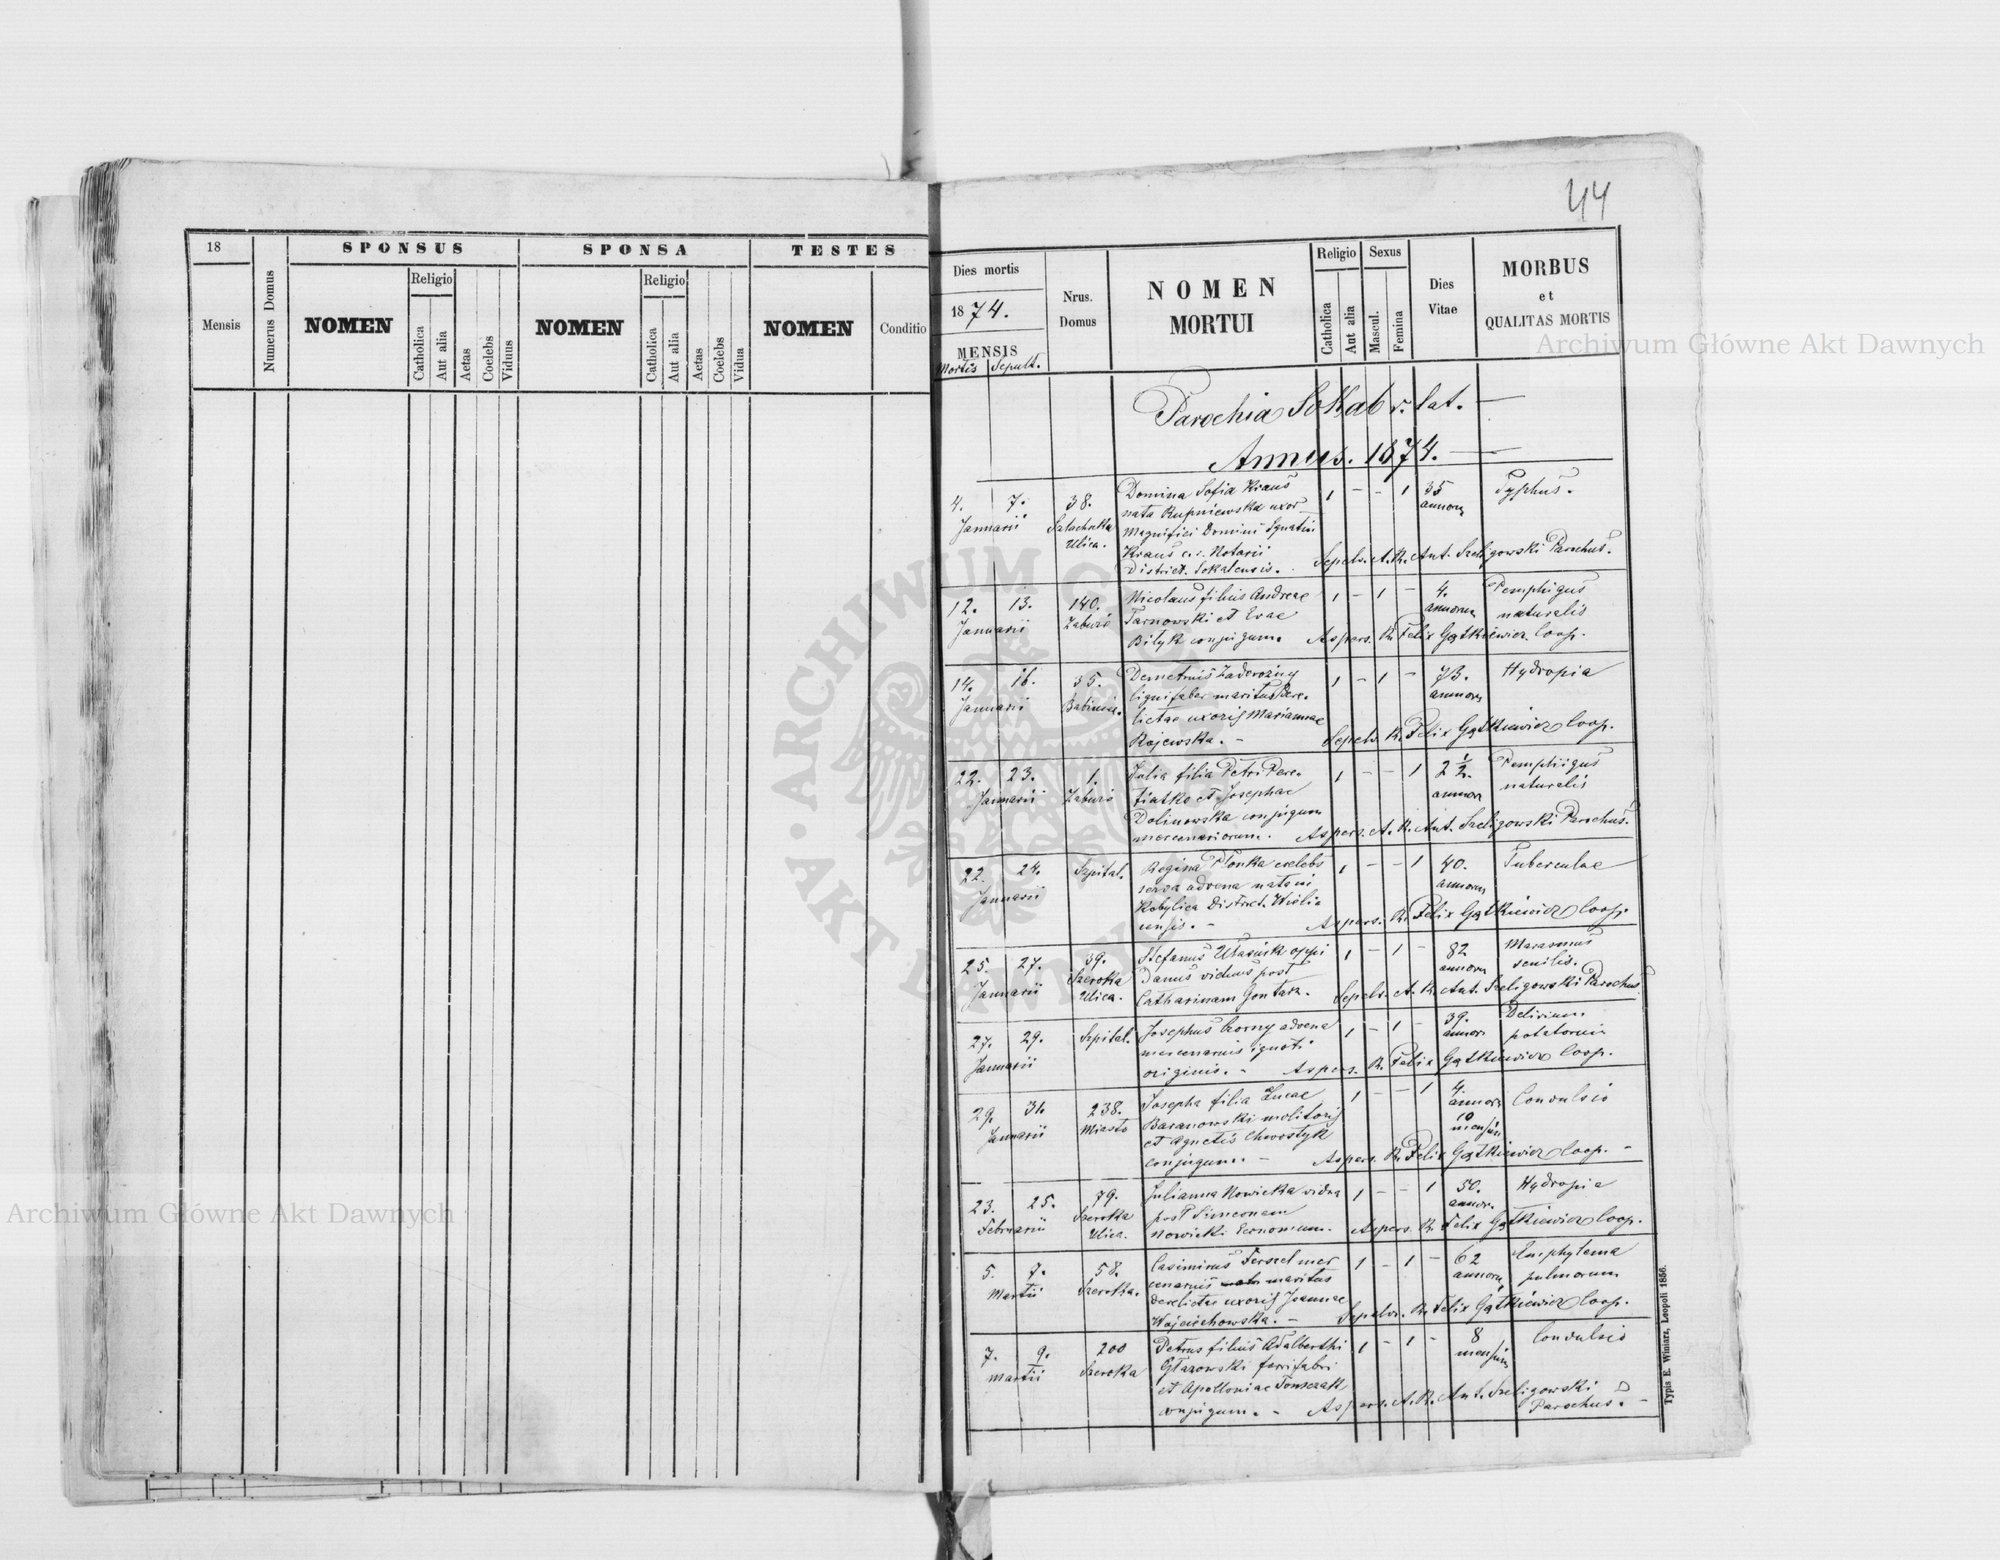 44
18
SPONSUS
SPONSA
TESTES
Mensis
Numerus Domus
NOMEN
Religio
Catholica
Aut alia
Aetas
Coelebs
Viduus
NOMEN
Religio
Catholica
Aut alia
Aetas
Coelebs
Vidua
NOMEN
Conditio
Dies mortis
1874.
MENSIS
Mortis Sepult.
Nrus.
Domus
NOMEN
MORTUI
Religio
Catholica
Aut alia
Sexus
Mascul.
Femina
Dies
Vitae
MORBUS
et
QUALITAS MORTIS
Parochia Sokal r. lat. —
Annus. 1874. —
4. 7. 38. Domina Sofia Kraus 1 - - 1 35 Typhus.
Januarii Szlachecka nata Rupniewska uxor annor.
Ulica. Magnifici Domini Ignatii
Kraus c.r. Notarii Sepelv. A. R. Ant. Szeligowski Parochus.
District. Sokalensis.
12. 13. 140. Nicolaus filius Andreae 1 - 1 - 4. Pemphigus
Januarii Zabuże Tarnowski et Evae annorum naturalis
Bityk conjugum. Aspers. R. Felix Gątkiewicz Coop.
14. 16. 35. Demetrius Zadorożny 1 - 1 - 73. Hydropia
Januarii Babiniec. lignifaber maritus Dere- annorum
lictae uxoris Mariannae
Rajewska. - Sepelv. R. Felix Gątkiewicz Coop.
22. 23. 1. Julia filia Petri Pere- 1 - - 1 2 1/2. Pemphiigus
Januarii Zabuże tiatko et Josephae annor. naturalis
Dolinowska conjugum
mercenariorum. Aspers. A. R. Ant. Szeligowski Parochus.
22. 24. Szpital. Regina Płonka coelebs 1 - - 1 40. Tuberculae
Januarii serva advena nata in annorum
Kobylica District. Wielic
ensis. - Aspers. R. Felix Gątkiewicz Coop.
25. 27. 39. Stefanus Utasiuk oppi 1 - 1 - 82 Marasmus
Januarii Szeroka Danus viduus post annorum senilis.
Ulica. Catharinam Gontarz. Sepelv. A. R. Ant. Szeligowski Parochus.
27. 29. Szpital. Josephus Czorny advena 1 - 1 - 39. Delirium
Januarii mercenarius ignoti annor. potatorum
originis. - Aspers. R. Felix Gątkiewicz Coop.
29. 31. 238. Josepha filia Lucae 1 - - 1 4. Convulsio
Januarii Miasto Baranowski molitoris annor.
et Agnetis Chwostyk 10 mensium
conjugum. - Aspers. R. Felix Gątkiewicz Coop. -
23. 25. 79. Julianna Nowicka vidua 1 - - 1 50. Hydropia
Februarii Szeroka post Simeonem annor.
Ulica. Nowicki Economum. Aspers. R. Felix Gątkiewicz Coop.
5. 7. 58. Casimirus mer 1 - 1 - 62 Emphytema
Martii Szeroka. cenarius maritus annorum pulmorum
derelictae uxoris Joannae
Wojciechowska. - Sepelv. R. Felix Gątkiewicz Coop.
7. 9. 200 Petrus filius Adalberthi 1 - 1 - 8 Convulsio
Martii Szeroka Głazowski ferrifabri mensium
et Apolloniae Tomczak
conjugum. - Aspers. A. R. Ant. Szeligowski
Parochus. -
Typis E. Winiarz, Leopoli 1856.
Archiwum Główne Akt Dawnych
Archiwum Główne Akt Dawnych